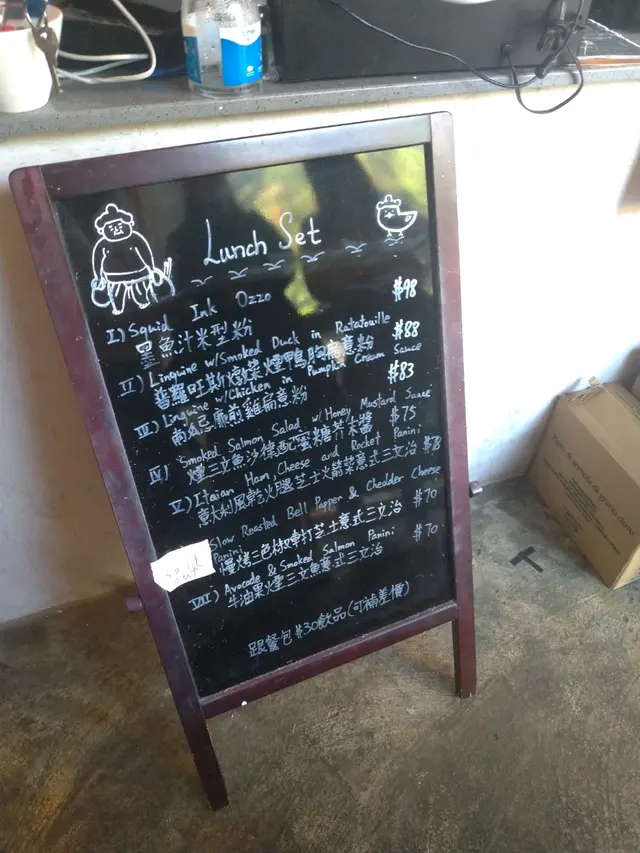 Lunch Set
I) Squid Ink Ozzo $98
墨魚汁米型粉
II) Linguine w/Smoked Duck in Ratatouille $88
普羅旺斯燉菜煙鴨胸扁意粉
III) Linguine w/Chicken in Pumpkin Cream Sauce $83
南瓜忌廉煎雞扁意粉
IV) Smoked Salmon Salad w/ Honey Mustard Sauce $75
煙三文魚沙律配蜜糖芥末醬
V) Itaian Ham, Cheese and Rocket Panini
意大利風乾火腿芝士火箭菜意式三文治
Slow Roasted Bell Pepper & Chedder Cheese $70
Panini
慢烤三色椒車打芝士意式三文治
VII) Avocado & Smoked Salmon Panini $70
牛油果煙三文魚意式三文治
跟餐包$30飲品(可補差價)